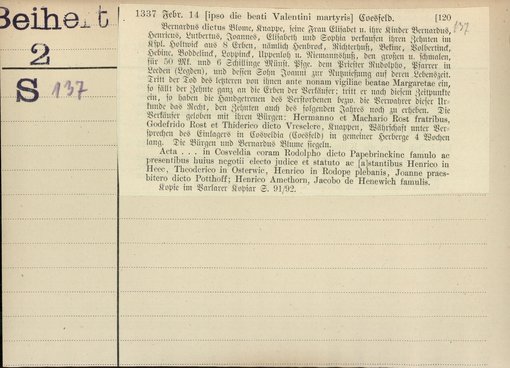 Beiheft
2
S 137
1337 Febr. 14 [ipso die beati Valentini martyris] Coesfeld. [120
137
Bernardus dictus Blome, Knappe, seine Frau Elisabet u. ihre Kinder Bernardus,
Henricus, Lutbertus, Joannes, Elisabeth und Sophia verkaufen ihren Zehnten im
Kspl. Holtwick aus 8 Erben, nämlich Henbrok, Richterhus, Bekine, Volbertinc,
Hebinc, Boddelinck, Loppinck, Uppenloh u. Niemannshus, den großen u. schmalen,
für 50 Mk. und 6 Schillinge Münst. Pfge. dem Priester Rudolpho, Pfarrer in
Leeden (Legden), und dessen Sohn Joanni zur Nutznießung auf deren Lebenszeit.
Tritt der Tod des letzteren von ihnen ante nonam vigiliae beatae Margaretae ein,
so fällt der Zehnte ganz an die Erben der Verkäufer; tritt er nach diesem Zeitpunkte
ein, so haben die Handgetreuen des Verstorbenen bezw. die Bewahrer dieser Ur-
kunde das Recht, den Zehnten auch des folgenden Jahres noch zu erheben. Die
Verkäufer geloben mit ihren Bürgen: Hermanno et Machario Rost fratribus,
Godefrido Rost et Thiderico dicto Vreselere, Knappen, Währschaft unter Ver-
sprechen des Einlagers in Cosveldia (Coesfeld) in gemeiner Herberge 4 Wochen
lang. Die Bürgen und Bernardus Blume siegeln.
Acta . . . in Cosveldia coram Rodolpho dicto Papebrinckine famulo ac
presentibus huius negotii electo judice et statuto ac [a]stantibus Henrico in
Heec, Theoderico in Osterwic, Henrico in Rodope plebanis, Joanne praes-
bitero dicto Potthoff; Henrico Amethorn, Jacobo de Henewich famulis.
Kopie im Varlarer Kopiar S. 91/92.